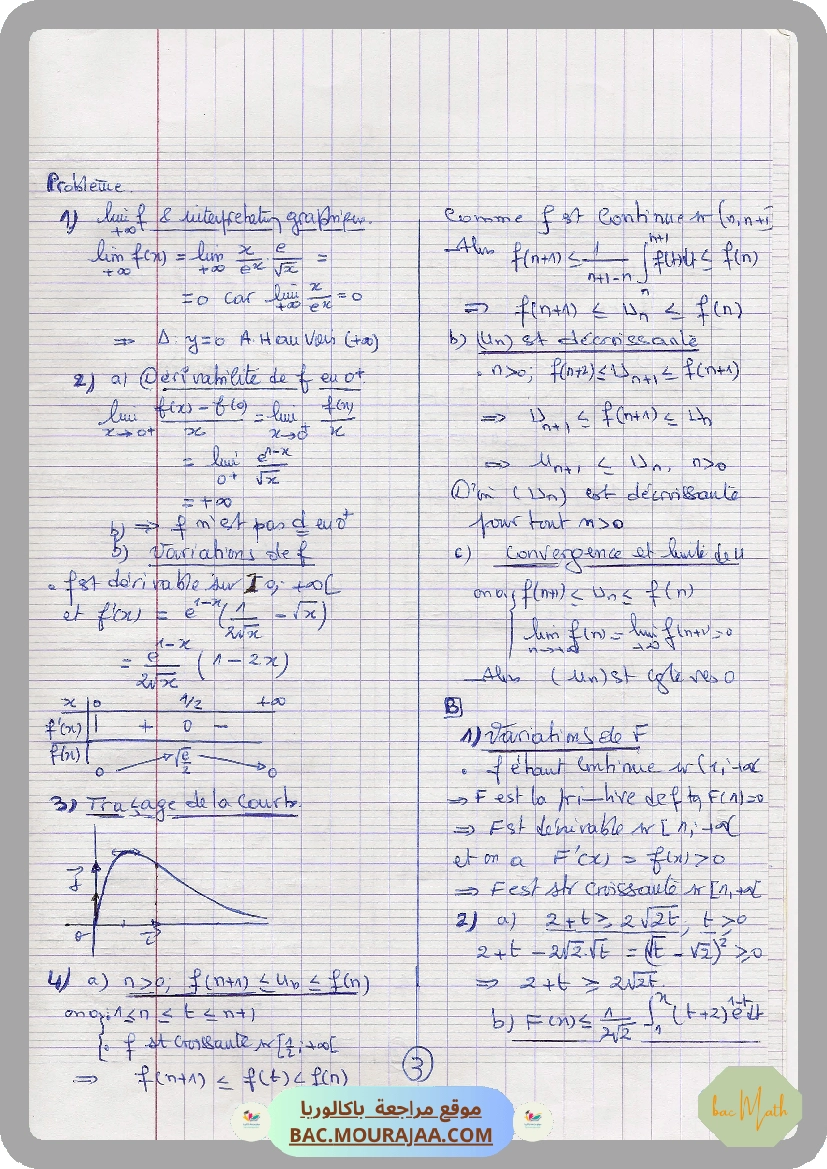 Problème.
1) lim f & interprétation graphique.
+∞
lim f(x) = lim x/e^x · e/√x =
+∞ +∞
= 0 car lim x/e^x = 0
+∞
⇒ Δ: y=0 A.H au Vois (+∞)
2) a) Dérivabilité de f en 0⁺
lim (f(x) - f(0))/x = lim f(x)/x
x→0⁺ x→0⁺
= lim e^(1-x)/√x
0⁺
= +∞
b) ⇒ f n'est pas d en 0⁺
b) Variations de f
• f est dérivable sur ]0, +∞[
et f'(x) = e^(1-x) (1/(2√x) - √x)
= e^(1-x)/(2√x) (1 - 2x)
x 0 1/2 +∞
f'(x) + 0 -
f(x) 0 √e/2 0
3) Traçage de la Courbe.
4) a) n>0; f(n+1) ≤ Un ≤ f(n)
on a: 1 ≤ n ≤ t ≤ n+1
• f est croissante sr [1/2; +∞[
⇒ f(n+1) ≤ f(t) < f(n)
Comme f est Continue sr [n, n+1]
Alors f(n+1) ≤ 1/(n+1-n) ∫_n^(n+1) f(t)dt ≤ f(n)
⇒ f(n+1) ≤ Un ≤ f(n)
b) (Un) est décroissante
• n>0; f(n+2) ≤ Un+1 ≤ f(n+1)
⇒ Un+1 ≤ f(n+1) ≤ Un
⇒ Un+1 ≤ Un, n>0
D'où (Un) est décroissante
pour tout n>0
c) Convergence et limite de U
on a f(n+1) ≤ Un ≤ f(n)
lim f(n) = lim f(n+1) = 0
n→+∞ →+∞
Alors (Un) est cgte vers 0
B
1) Variations de F
• f étant Continue sr [1, +∞[
⇒ F est la primitive de f tq F(1)=0
⇒ F est dérivable sr [1, +∞[
et on a F'(x) = f(x) > 0
⇒ F est str croissante sr [1, +∞[
2) a) 2+t ≥ 2√2t, t ≥ 0
2+t - 2√2·√t = (√t - √2)² ≥ 0
⇒ 2+t ≥ 2√2t
b) F(x) ≤ 1/(2√2) ∫_1^x (t+2) e^(1-t) dt
3
موقع مراجعة باكالوريا
BAC.MOURAJAA.COM
bac Math